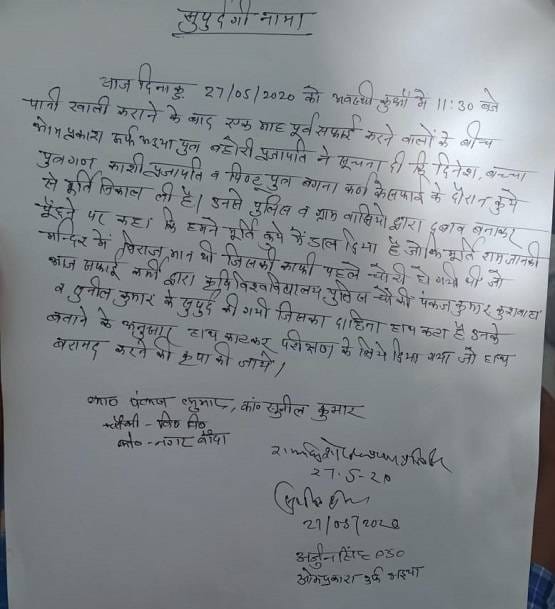 सुपुर्दगी नामा
आज दिनांक 27/05/2020 को अवस्थी कुआँ में 11:30 बजे
पानी खाली कराने के बाद एक माह पूर्व सफाई करने वालों के बीच
ओमप्रकाश उर्फ भइया पुत्र बहोरी प्रजापति ने सूचना दी कि दिनेश, बच्चा
पुत्रगण काशी प्रजापति व पिण्टू पुत्र के सफाई के दौरान कुये
से मूर्ति निकाल ली है। इनसे पुलिस व ग्राम वासियो द्वारा दबाव बनाकर
पूँछने पर कहा कि हमने मूर्ति कुये में डाल दिया है जोकि मूर्ति रामजानकी
मन्दिर में विराजमान थी जिसकी काफी पहले चोरी हो गयी थी जो
आज सफाई कर्मी द्वारा कृषि विश्वविद्यालय पुलिस चौकी पंकज कुमार कुशवाहा
व सुनील कुमार के सुपुर्द की गयी जिसका दाहिना हाथ कटा है उनके
बताने के अनुसार हाथ काटकर परीक्षण के लिये दिया गया जो हाथ
बरामद करने की कृपा की जाये।
पंकज कुमार, कां० सुनील कुमार
चौकी - वि०
को०-नगर बाँदा
27.5-20
27/05/2020
अर्जुन सिंह
ओमप्रकाश उर्फ भइया